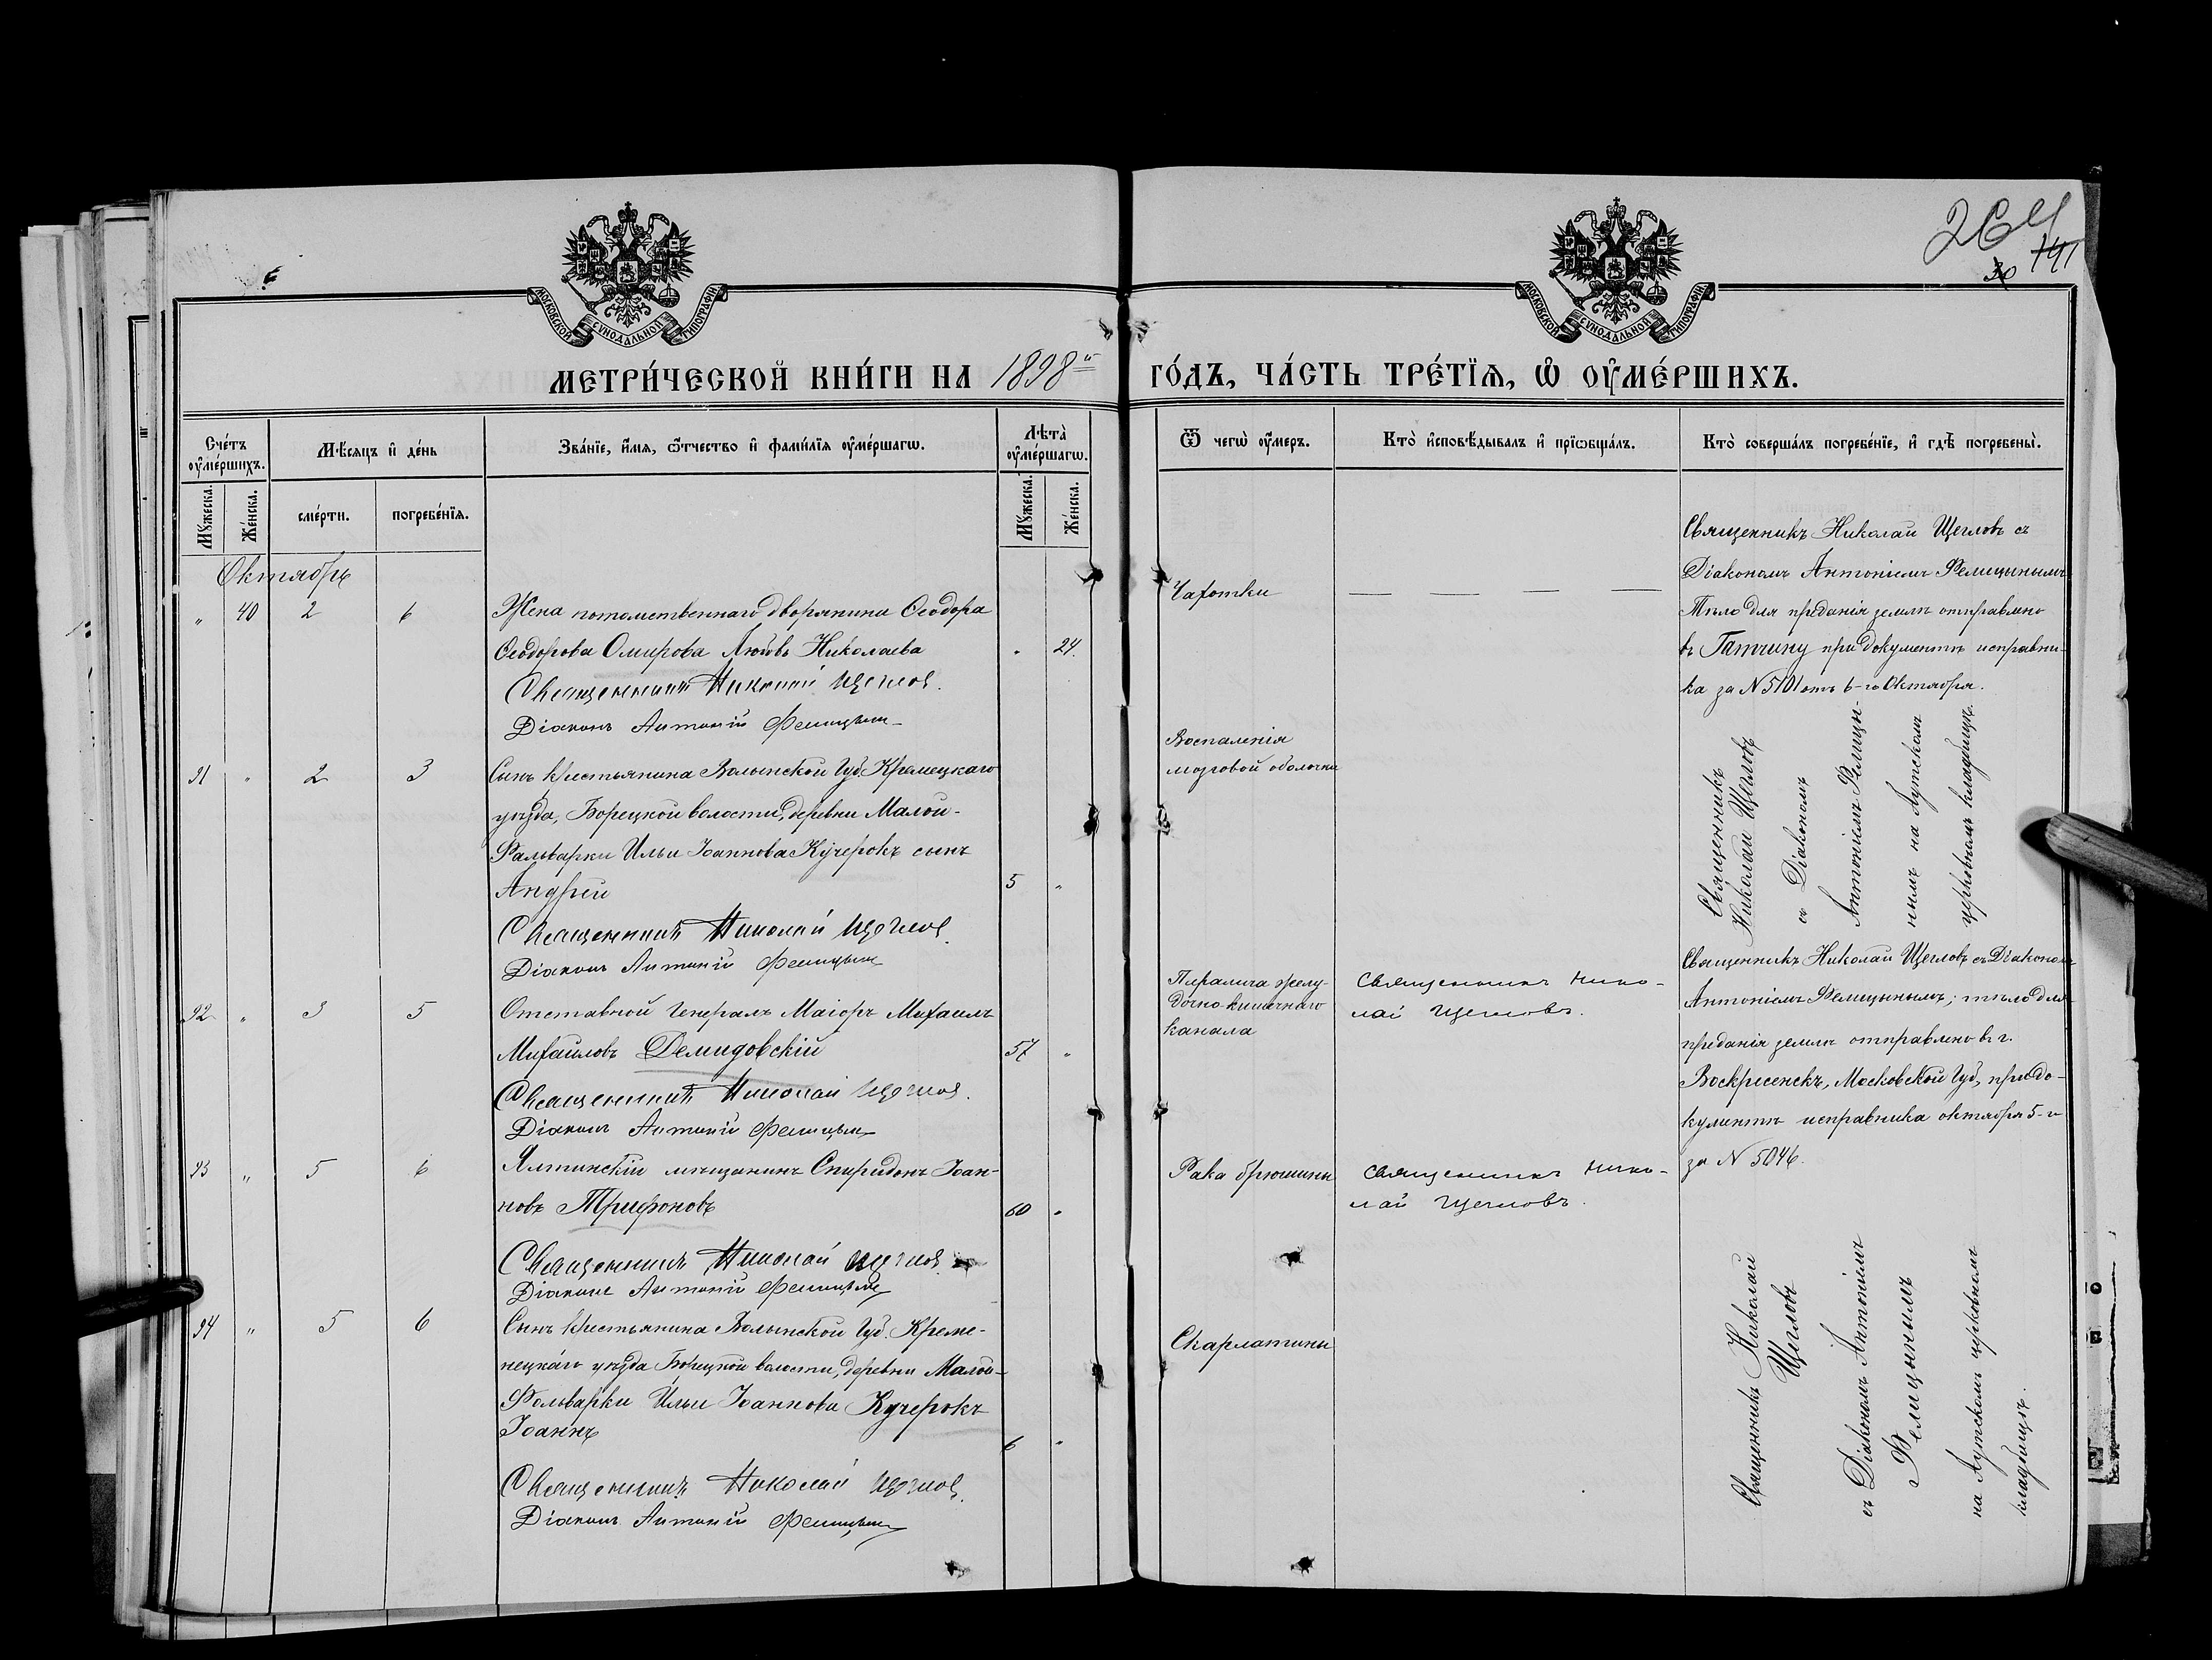 264
141
30
МОСКОВСКОЙ СѴНОДАЛЬНОЙ ТИПОГРАФІИ
МОСКОВСКОЙ СѴНОДАЛЬНОЙ ТИПОГРАФІИ
МЕТРИ́ЧЕСКОЙ КНИ́ГИ НА 1898й ГО́ДЪ, ЧА́СТЬ ТРЕ́ТЇѦ, Ѽ ОУ҆МЕ́РШИХЪ.
Сче́тъ оу҆ме́ршихъ.
Мѣ́сѧцъ и҆ де́нь
Зва́нїе, и҆́мѧ, ѻ҆́тчество и҆ фами́лїѧ оу҆ме́ршагѡ.
Лѣ́та̀ оу҆ме́ршагѡ.
Ѿ чегѡ̀ оу҆́меръ.
Кто̀ и҆сповѣ́дывалъ и҆ прїѡбща́лъ.
Кто̀ соверша́лъ погребе́нїе, и҆ гдѣ̀ погребены̀.
Мꙋ́жеска.
Же́нска.
сме́рти.
погребе́нїѧ.
Мꙋ́жеска.
Же́нска.
Октябрь
„ 40 2 6
Жена потомственнаго дворянина Ѳеодора
Ѳеодорова Омирова Любовь Николаева
„ 24.
Священникъ Николай Щегловъ.
Діаконъ Антоній Фелицынъ
Чахотки
Священникъ Николай Щегловъ съ
Діакономъ Антоніемъ Фелицынымъ
Тѣло для преданія землѣ отправлено
въ Гатчину при документѣ исправни-
ка за № 5101 отъ 6-го Октября.
91 „ 2 3
Сынъ крестьянина Волынской Губ. Кремецкаго
уѣзда, Борецкой волости, деревни Малой-
Фальварки Ильи Іоаннова Кучерокъ сынъ
Андрей
5 „
Священникъ Николай Щегловъ.
Діаконъ Антоній Фелицынъ
Воспаленія
мозговой оболочки
Священникъ
Николай Щегловъ
съ Діакономъ
Антоніемъ Фелицы-
нымъ на Аутскомъ
церковномъ кладбищѣ.
92 „ 3 5
Отставной Генералъ Маіоръ Михаилъ
Михаиловъ Демидовскій
57 „
Священникъ Николай Щегловъ.
Діаконъ Антоній Фелицынъ
Паралича желу-
дочно-кишечнаго
канала
Священникъ Нико-
лай Щегловъ.
Священникъ Николай Щегловъ съ Діакономъ
Антоніемъ Фелицынымъ; тѣло для
преданія землѣ отправлено въ г.
Воскресенскъ, Московской Губ., при до-
кументѣ исправника октября 5-го
за № 5046.
93 „ 5 6
Ялтинскій мѣщанинъ Спиридонъ Іоан-
новъ Трифоновъ
60 „
Священникъ Николай Щегловъ.
Діаконъ Антоній Фелицынъ
Рака брюшины
Священникъ Нико-
лай Щегловъ.
94 „ 5 6
Сынъ крестьянина Волынской Губ. Креме-
нецкаго уѣзда Борецкой волости, деревни Малой-
Фольварки Ильи Іоаннова Кучерокъ
Іоаннъ
6 „
Священникъ Николай Щегловъ.
Діаконъ Антоній Фелицынъ
Скарлатины
Священникъ Николай
Щегловъ
съ Діакономъ Антоніемъ
Фелицынымъ
на Аутскомъ церковномъ
кладбищѣ.